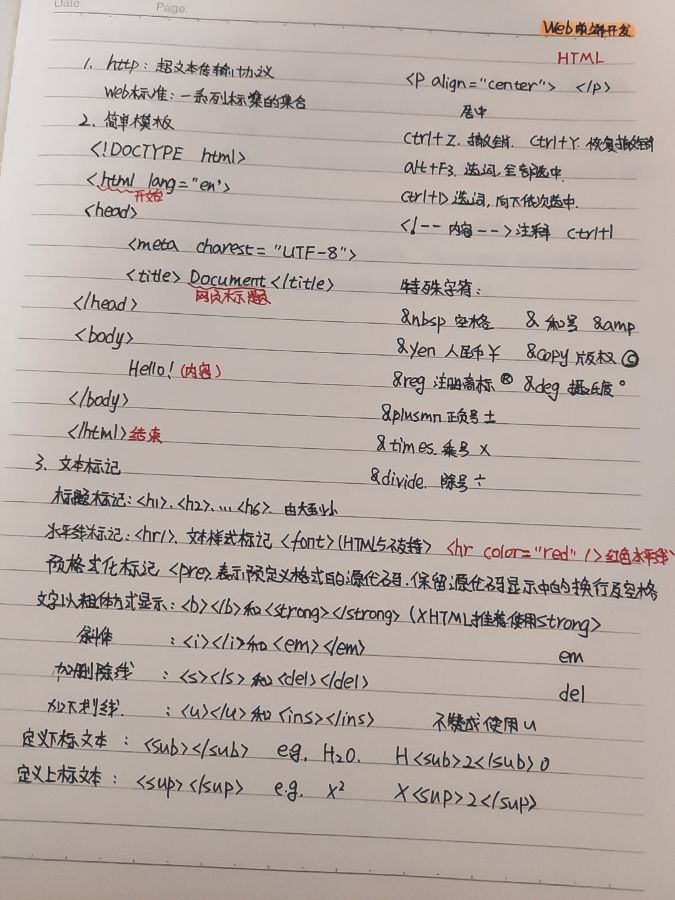 Date:
Page:
Web前端开发
HTML
1. http: 超文本传输协议
Web标准: 一系列标准的集合
2. 简单模板
<!DOCTYPE html>
<html lang="en">
开始
<head>
<meta charest="UTF-8">
<title> Document </title>
网页标题
</head>
<body>
Hello! (内容)
</body>
</html> 结束
<P align="center"> </p>
居中
ctrl+Z. 撤销. ctrl+Y. 恢复撤销
alt+F3. 选词, 全部选中.
ctrl+D 选词, 向下依次选中.
<!-- 内容 --> 注释 ctrl+/
特殊字符:
&nbsp 空格 & 和号 &amp
&yen 人民币 ¥ &copy 版权 ©
&reg 注册商标 ® &deg 摄氏度 °
&plusmn 正负号 ±
&times. 乘号 ×
&divide. 除号 ÷
3. 文本标记
标题标记: <h1>. <h2>. ... <h6>. 由大到小
水平线标记: <hr/>. 文本样式标记 <font> (HTML5不支持) <hr color="red" /> 红色水平线
预格式化标记 <pre> 表示预定义格式的源代码. 保留源代码显示中的换行及空格
文字以粗体方式显示: <b></b> 和 <strong></strong> (XHTML推荐使用strong>
斜体 : <i></i> 和 <em></em> em
加删除线 : <s></s> 和 <del></del> del
加下划线. : <u></u> 和 <ins></ins> 不赞成使用u
定义下标文本 : <sub></sub> e.g. H₂O. H<sub>2</sub>O
定义上标文本 : <sup></sup> e.g. x² X<sup>2</sup>